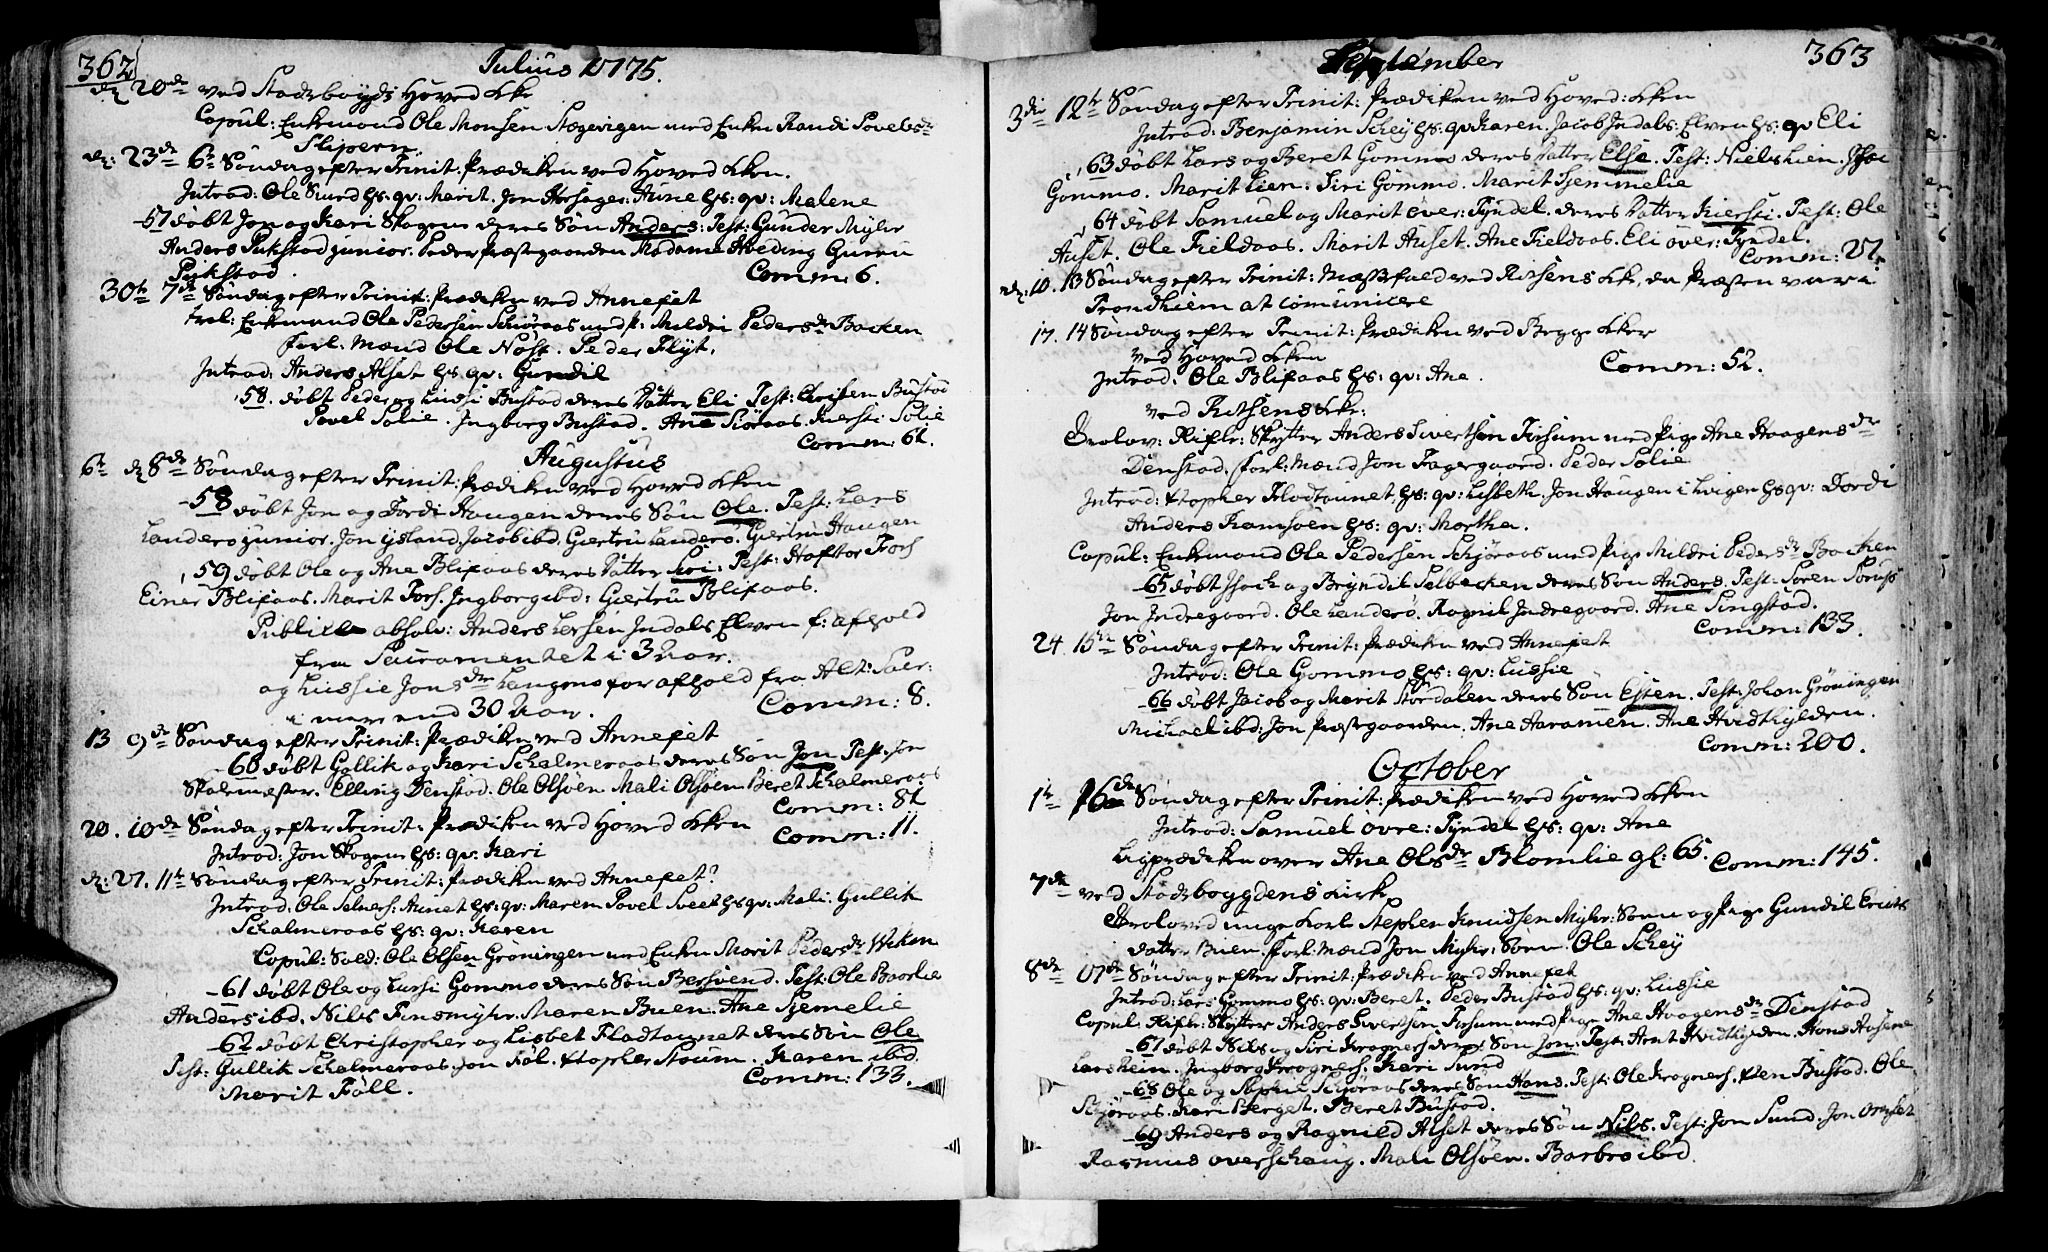 362
Julius 1775.
d. 20de ved Stadsboyds Hoved Kke
Copul: Enkemand Ole Monsen Stægevigen med Enken Randi Povelsdr
Slipern.
d: 23de 6te Søndag efter Trinit: Prædiken ved Hoved Kken.
Introd: Ole Sund hs: qv: Marit. Jon Aune hs: qv: Malene
57 døbt Jon og Kari Skogen deres Søn Anders. Test: Gunder Myhr
Anders Pukstad junior. Peder Præstegaarden Madame Hveding Guru
Pukstad. Comm: 6.
30te 7de Søndag efter Trinit: Prædiken ved Annexet
trol: Enkemand Ole Pedersen Schjøraas med p: Mildri Pedersdr Backen
forl: Mænd Ole Nøst. Peder Flÿt.
Introd: Anders Alset hs: qv: Gundil
58. døbt Peder og Lussi Bustad deres Datter Eli Test: Christen Bustad
Povel Solie. Ingborg Bustad. Ane Kiersti Solie
Comm: 61.
Augustus
6te d 8de Søndag efter Trinit: Prædiken ved Hoved Kken
58 døbt Jon og Dordi Haugen deres Søn Ole. Test: Lars
Landerø junior. Jon Ysland, Jacob ibd. Giertru Landerø. Giertru Haugen
59 døbt Ole og Ane Blixaas deres Datter Siri: Test: Haftor Fors
Einer Blixaas. Marit Fors. Ingborg ibd: Giertru Blixaas.
Publice absolv: Anders Larsen Indals Elven f: afhold
fra Sacramentet i 3 Aar.
og Lussie Jonsdr Langmo for afhold fra Alt: Sacr:
i mere end 30 Aar. Comm: 8.
13 9de Søndag efter Trinit: Prædiken ved Annexet
60 døbt Gullik og Kari Schalmeraas deres Søn Jon Test: Jon
Skolemester. Elling Denstad. Ole Olsøen Mali Olsøen Beret Schalmeraas
Comm: 81
20. 10de Søndag efter Trinit: Prædiken ved Hoved Kken Comm: 11.
Introd: Jon Skogen hs: qv: Kari
d: 27. 11te Søndag efter Trinit: Prædiken ved Annexet
Introd: Ole Selnes: Aunet hs: qv: Maren Povel Sveet hs qv: Mali. Gullik
Schalmeraas hs: qv: Karen
Copul: Sold: Ole Olsen Grøningen med Enken Marit Pedersdr Wiken
61 døbt Ole og Lussi Gommo deres Søn Bersvend. Test: Ole Boorlie
Anders ibd. Nils Finsmyhr. Maren Buen. Ane Tjemelie
62 døbt Christopher og Lisbet Fladtaunet deres Søn Ole
Test: Gullik Schalmeraas. Jon Føl. Xstopher Stoum. Karen ibd.
Marit Føll. Comm: 133.

September 363
3die 12te Søndag efter Trinit: Prædiken ved Hoved: Kken
Introd: Benjamin Schey hs: qv: Karen. Jacob Indals: Elven hs: qv Eli
63 døbt Lars og Beret Gommo deres Datter Else. Test: Niels Lien.
Gommo. Marit Lien. Siri Gommo. Marit Tjemmelie
64 døbt Samuel og Marit Øver: Tyndel. deres Datter Kiersti. Test: Ole
Auset. Ole Fieldaas. Marit Auset. Ane Fieldaas. Eli Øver: Tyndel.
Comm: 27.
d: 10. 13 Søndag efter Trinit: Messefald ved Ritsens Kke, da Præsten var i
Trondhiem at comunicere
17. 14 Søndag efter Trinit: Prædiken ved Begge Kker
ved Hoved Kken Comm: 52.
Introd: Ole Blixaas hs: qv: Ane.
ved Ritsens Kke:
Trolov: Rifle: Skytter Anders Sivertsen Forsum med Pige Ane Haagensdr
Denstad. forl: Mænd Jon Fagergaard. Peder Solie
Introd: Xstopher Fladtaunet hs: qv: Lisbeth. Jon Haugen i Lvigen hs qv: Dordi
Anders Ramsøen hs: qv: Martha.
Copul: Enkemand Ole Pedersen Schjøraas med Pige Mildri Pedersdr Backen
65 døbt Isach og Bryndil Selbecken deres Søn Anders. Test: Søren
Jon Indregaard. Ole Landerø. Ragnil Indregaard. Ane Singstad.
Comm: 133.
24. 15de Søndag efter Trinit: Prædiken ved Annexet
Introd: Ole Gommo hs: qv: Lussie
66 døbt Jacob og Marit Stordalen deres Søn Esten. Test: Johan Grøningen
Michael ibd: Jon Præstegaarden. Ane Aaramen. Ane Hvidthylden.
Comm: 200.
October
1te 16de Søndag efter Trinit: Prædiken ved Hoved Kken
Introd: Samuel Øvre: Tyndel hs: qv: Ane
Ligprædiken over Ane Olsdr Blomlie gl: 65. Comm: 145.
7de ved Stadsboygdens Kirke
Trolovet unge Karl Stephen Knudsen Myhr: Sorn og Pige Gundil Erichs
datter Buen. forl: Mænd Jon Myhr: Sørn. Ole Schey
8de 17de Søndag efter Trinit: Prædiken ved Annexet
Introd: Lars Gommo hs: qv: Beret. Peder Bustad hs: qv: Lussie
Copul. Rifle: Skytter Anders Sivertsen Forsum med Pige Ane Haagensdr Denstad
67 døbt Nils og Siri Krognes deres Søn Jon. Test: Arnt Hvidthylden. Hans Aasene
Lars Hein. Ingborg Krognes. Kari Sund
68 Ole og Schjøraas deres Søn Hans. Test: Ole Krognes. Xsten Bustad. Ole
Schjøraas. Kari Berget. Beret Bustad.
69 Anders og Ragnild Alset deres Søn Nils. Test: Jon Sund. Jon
Rasmus Overschaug. Mali Olsøen. Barbro ibd.